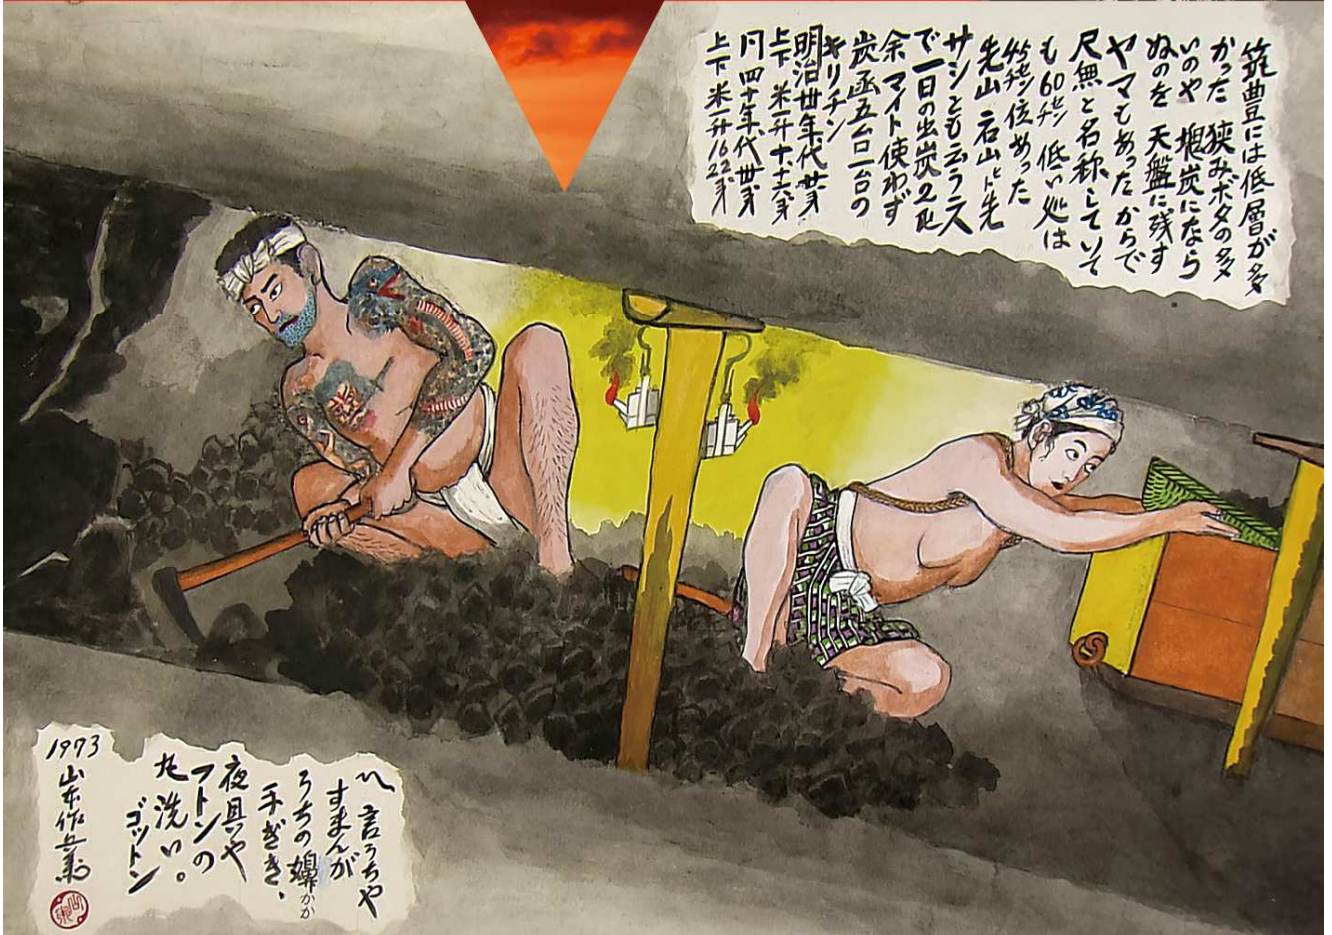 筑豊には低層が多
かった 狭みボタの多
いのや 塊炭になら
ぬのを 天盤に残す
ヤマもあったからで
尺無と名称していて
も60センチ 低い処は
45センチ位あった
先山 一人
サシとも云う 二人
で一日の出炭2屯
余 マイト使わず
炭函五台一台の
キリチン
明治卅年代廿銭
上下 米一升十、十六銭
四十年代卅銭
上下 米一升16 22銭
〽 言うちや
すまんが
うちの嬶かか
手ぎき、
夜具や
フトンの
丸洗い。
ゴットン
1973
山本作兵衛